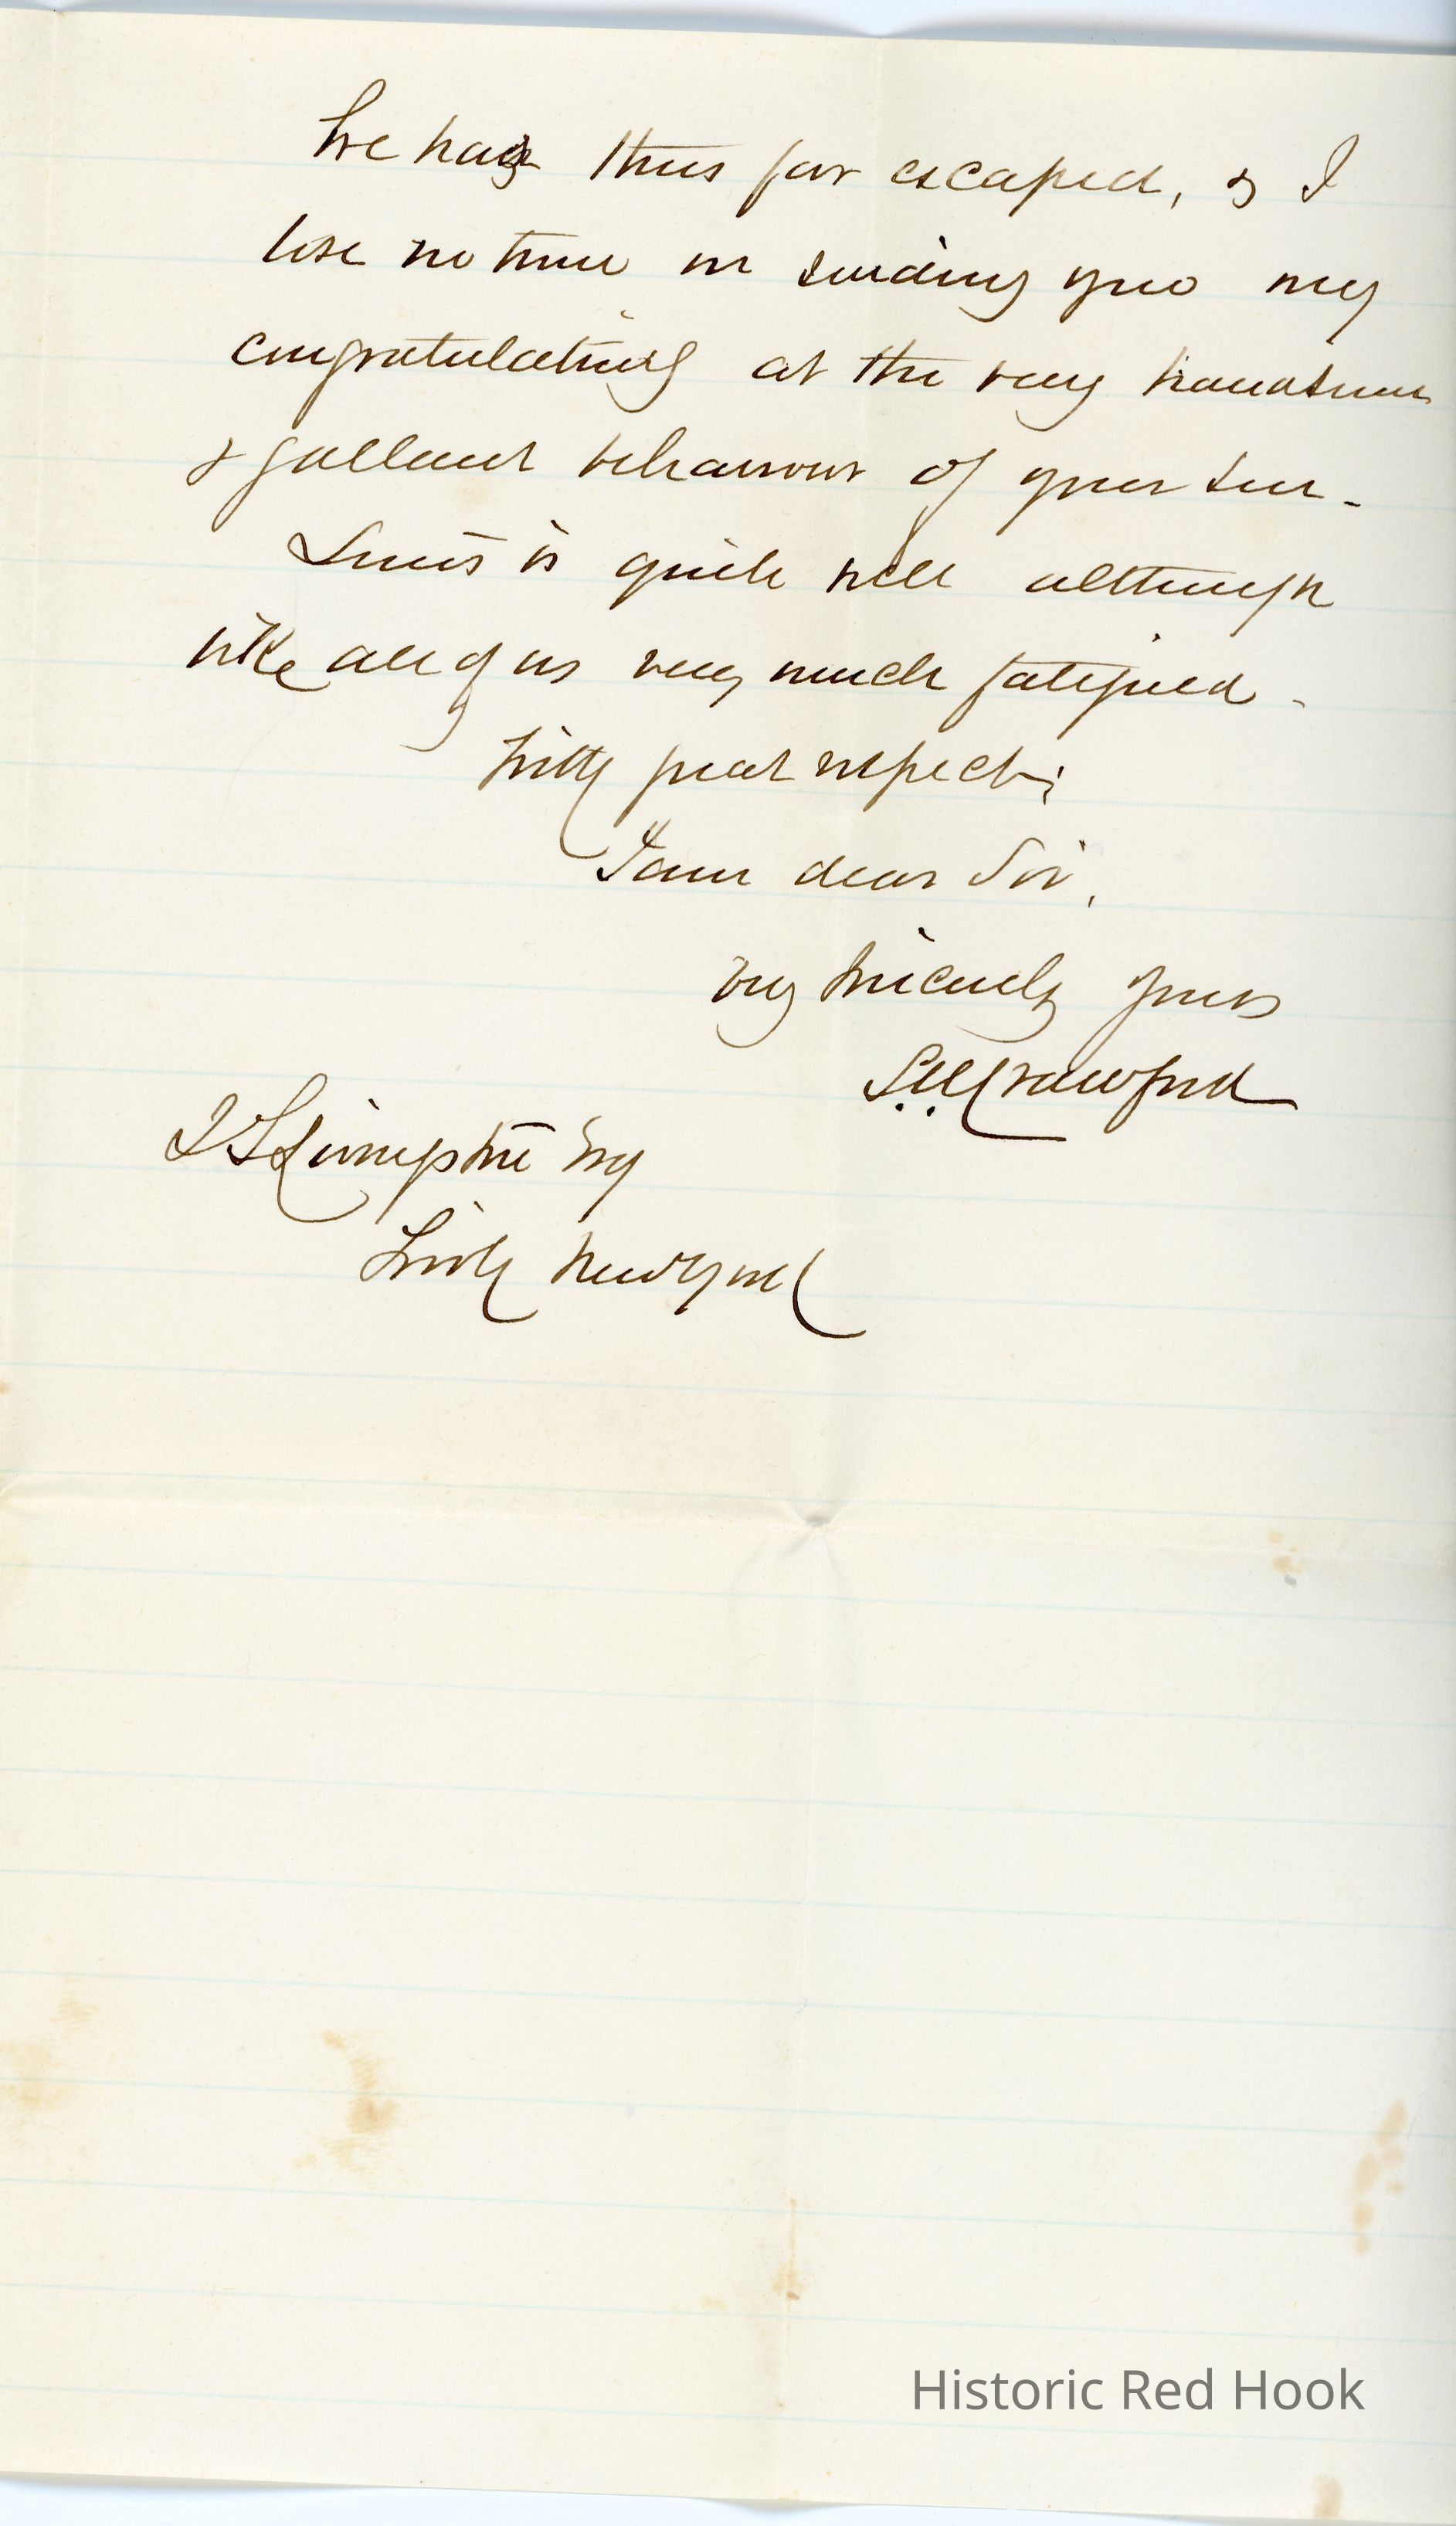 We have thus far escaped, & I
lose no time in sending you my
congratulations at the very handsome
& gallant behaviour of your son -
Louis is quite well although
like all of us very much fatigued -
With great respect,
I am dear Sir,
very sincerely yours
S.W. Crawford
Livingston Esq
New York
Historic Red Hook